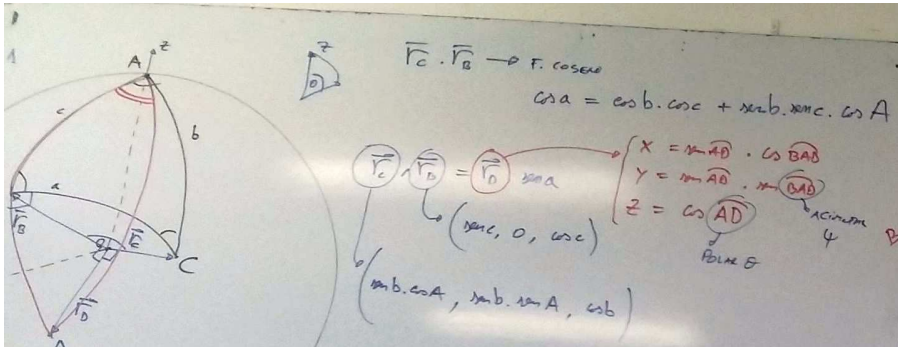 A
z
c
b
a
r̄_B
r̄_C
C
r̄_D
z
θ
r̄_C · r̄_B → F. COSENO
cos a = cos b . cos c + sen b . sen c . cos A
r̄_C ∧ r̄_D = r̄_D sen a
X = sen AD · cos BAD
Y = sen AD · sen BAD
Z = cos AD
(sen c, 0, cos c)
POLAR θ
(sen b . cos A, sen b . sen A, cos b)